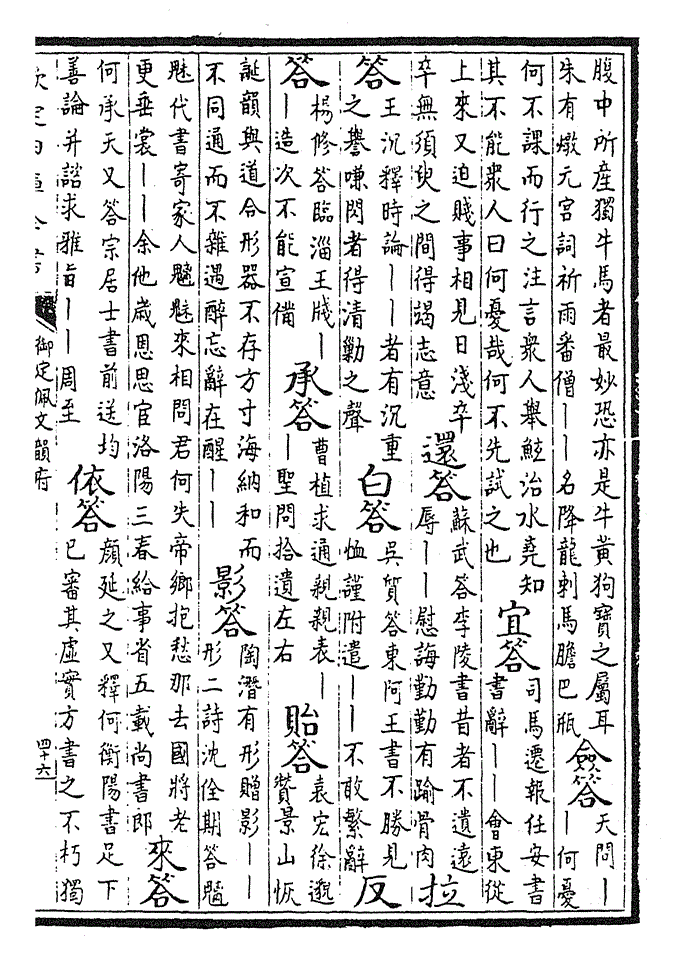 腹中所産獨牛馬者最妙恐亦是牛黄狗寶之屬耳
朱有燉元宫詞祈雨番僧——名降龍刺馬膽巴瓶
僉答
天問—
—何憂
何不課而行之注言衆人舉鮌治水堯知
其不能衆人曰何憂哉何不先試之也
宜答
司馬遷報任安書
書辭——會東從
上來又迫賤事相見日淺卒
卒無須臾之間得竭志意
還答
蘇武答李陵書昔者不遺遠
辱——慰誨勤勤有踰骨肉
拉
答
王沉釋時論——者有沉重
之譽嗛閃者得清勦之聲
白答
吳質答東阿王書不勝見
恤謹附遣——不敢繁辭
反
答
楊修答臨淄王牋—
—造次不能宣備
承答
曹植求通親親表—
—聖問拾遺左右
貽答
袁宏徐邈
贊景山恢
誕韻與道合形器不存方寸海納和而
不同通而不雜遇醉忘辭在醒——
影答
陶潛有形贈影——
形二詩沈佺期答魑
魅代書寄家人魑魅來相問君何失帝鄉抱愁那去國將老
更垂裳——余他嵗恩思官洛陽三春給事省五載尚書郎
來答
何承天又答宗居士書前送均
善論并諮求雅旨——周至
依答
顔延之又釋何衡陽書足下
已審其虛實方書之不朽獨
欽定四庫全書
御定佩文韻府
四十六